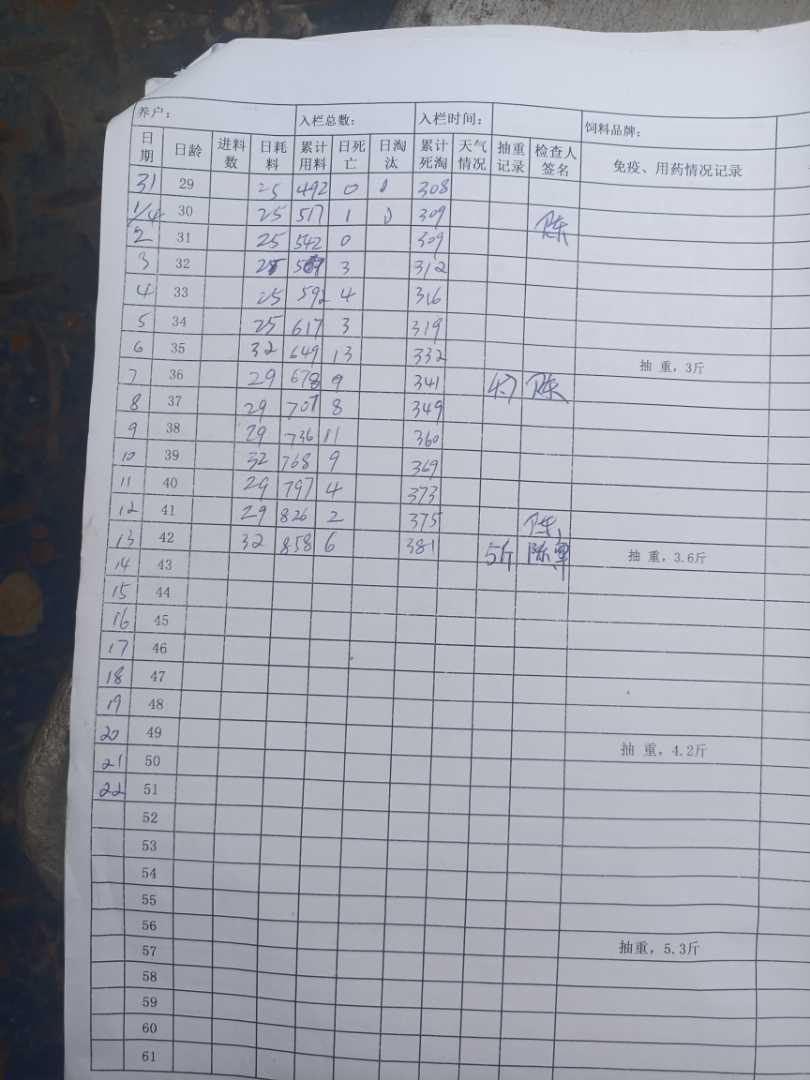 养户： 入栏总数： 入栏时间： 饲料品牌：
日期 日龄 进料数 日耗料 累计用料 日死亡 日淘汰 累计死淘 天气情况 抽重记录 检查人签名 免疫、用药情况记录
31 29 25 492 0 0 308
1/4 30 25 517 1 0 309 陈
2 31 25 542 0 309
3 32 25 567 3 312
4 33 25 592 4 316
5 34 25 617 3 319
6 35 32 649 13 332 抽 重，3斤
7 36 29 678 9 341 陈
8 37 29 707 8 349
9 38 29 736 11 360
10 39 32 768 9 369
11 40 29 797 4 373
12 41 29 826 2 375 陈
13 42 32 858 6 381 5斤 陈 抽 重，3.6斤
14 43
15 44
16 45
17 46
18 47
19 48
20 49 抽 重，4.2斤
21 50
22 51
52
53
54
55
56
57 抽重，5.3斤
58
59
60
61